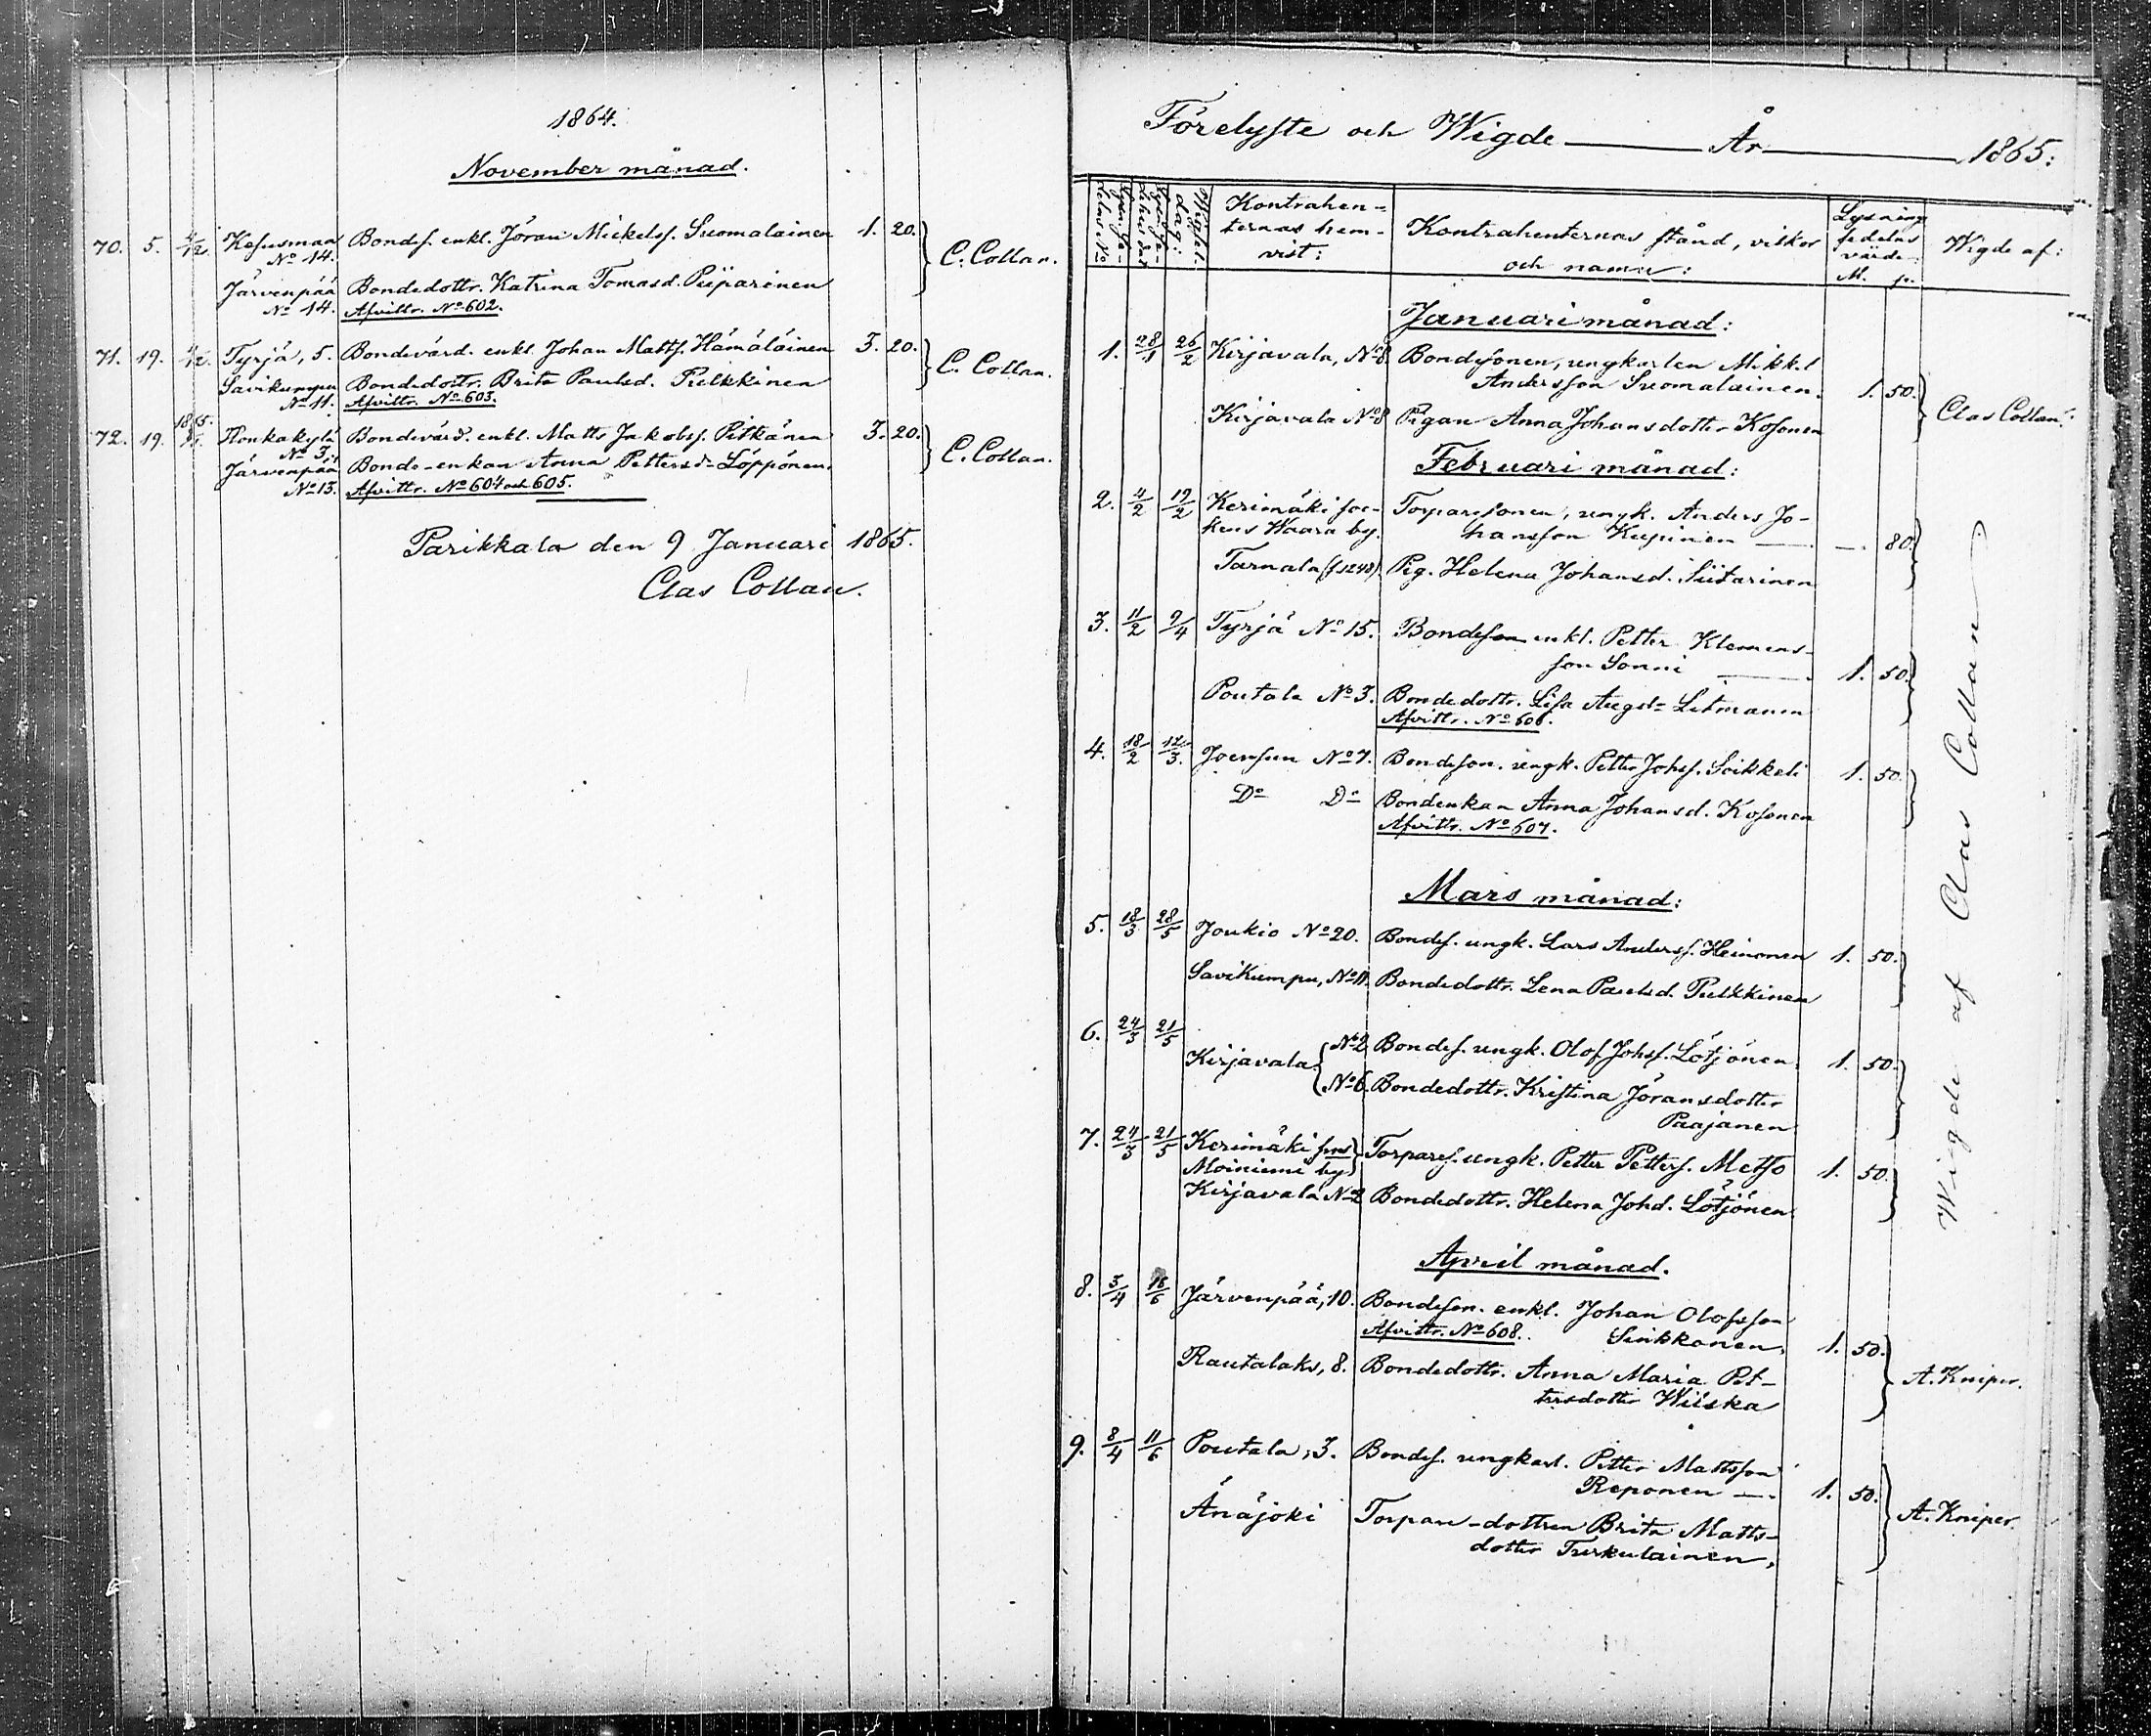 1864.
November månad.
70. 5. 4/12. Kesusmaa Bondes. enkl. Jöran Mickelss. Suomalainen 1. 20. C. Collan.
No 14.
Järvenpää Bondedottr. Katrina Tomasd. Piiparinen
No 14. Afvittr. No 602.
71. 19. 4/12. Tyrjä, 5. Bondevärd. enkl. Johan Matts. Hämäläinen 3. 20. C. Collan.
Savikumpu Bondedottr. Brita Paulsd. Pulkkinen
No 11. Afvittr. No 603.
1865.
72. 19. Honkakylä Bondevärd. enkl. Matts Jakobss. Pitkänen 3. 20. C. Collan.
No 3.
Järvenpää Bonde-enkan Anna Pettersd. Löppönen.
No 13. Afvittr. No 604 och 605.
Parikkala den 9 Januari 1865.
Clas Collan.
Förelyste och Wigde År 1865:
Kontrahen- Lysning
ternas hem- Kontrahenternas stånd, vilkor sedelns Wigde af:
vist: och namn: värde.
M. p.
Januari månad:
1. 28/1 26/2 Kirjavala, No 8 Bondesonen, ungkarlen Mikkel
Andersson Suomalainen. 1. 50. Clas Collan.
Kirjavala No 8 Pigan Anna Johansdotter Kosonen
Februari månad:
2. 4/2 19/2 Kerimäki soc- Torparesonen, ungk. Anders Jo-
kens Waara by. hansson Kupinen — —. 80.
Tarnala Pig. Helena Johansd. Siitarinen
3. 11/2 9/4 Tyrjä No 15. Bondeson enkl. Petter Klemens-
son Sonni 1. 50.
Poutala No 3. Bondedottr. Lisa Augsd. Litmanen
Afvittr. No 606.
4. 18/2 12/3. Joensuu No 7. Bondeson. ungk. Petter Johss. Soikkeli 1. 50.
Do Do Bondenkan Anna Johansd. Kosonen
Afvittr. No 607.
Mars månad:
5. 18/3 28/5 Joukio No 20. Bondes. ungk. Lars Anderss. Heinonen 1. 50.
Savikumpu, No 11. Bondedottr. Lena Paulsd. Pulkkinen
6. 24/3 21/5 Kirjavala No 2 Bondes. ungk. Olof Johss. Lötjönen. 1. 50.
No 6. Bondedottr. Kristina Jöransdotter
Paajanen
7. 24/3 21/5 Kerimäki sns Torpares. ungk. Petter Petters. Metso 1. 50.
Moiniemi by
Kirjavala No 2 Bondedottr. Helena Johd. Lötjönen.
April månad.
8. 3/4 16/6 Järvenpää, 10. Bondeson. enkl. Johan Olofsson
Afvittr. No 608. Sinkkonen, 1. 50. A. Kniper.
Rautalaks, 8. Bondedottr. Anna Maria Pet-
tersdotter Wilska
9. 8/4 11/6 Poutala, 3. Bondes. ungkarl. Petter Mattsson
Reponen —. 1. 50. A. Kniper.
Änäjoki Torpare-dottren Brita Matts-
dotter Turkulainen,
Wigde af Clas Collan